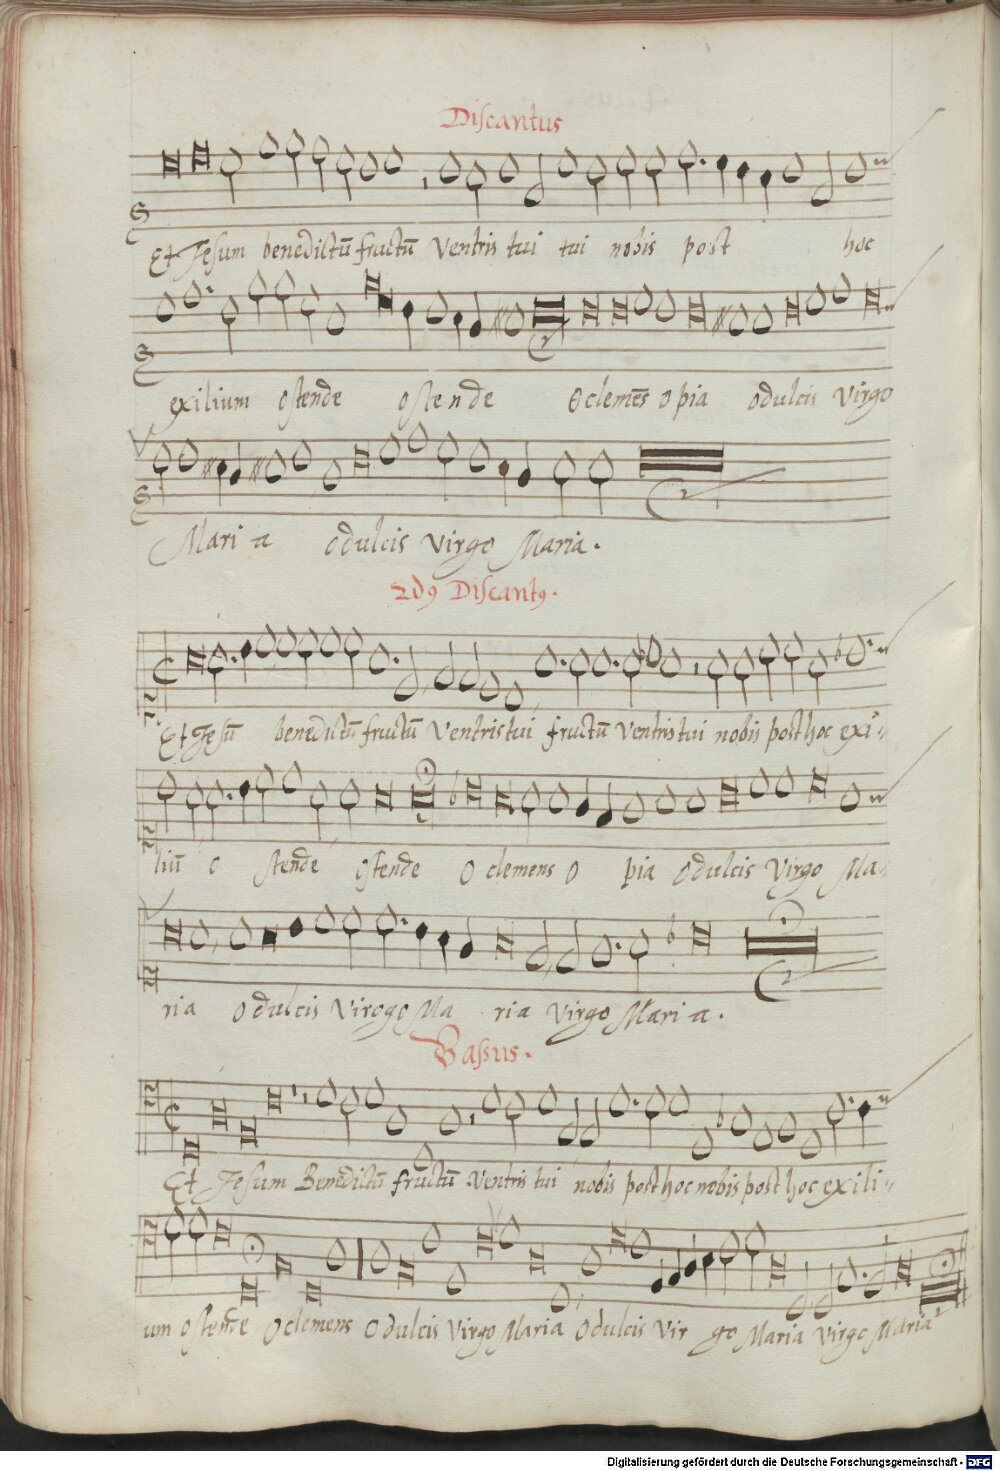 Discantus
Et Jesum benedictū fructū Ventris tui tui nobis post hoc
exilium ostende ostende O clemēs o pia o dulcis Virgo
Mari a o dulcis Virgo Maria.
2dꝰ Discantꝰ.
Et Jesū benedictū fructū Ventris tui fructū Ventris tui nobis post hoc exi-
liū o stende ostende O clemens O pia O dulcis Virgo Ma-
ria O dulcis Virogo Ma ria Virgo Mari-a.
Bassus.
Et Jesum Benedictū fructū Ventris tui nobis post hoc nobis post hoc exili-
um ostende O clemens O dulcis Virgo Maria O dulcis Vir go Maria Virgo Maria
Digitalisierung gefördert durch die Deutsche Forschungsgemeinschaft - DFG